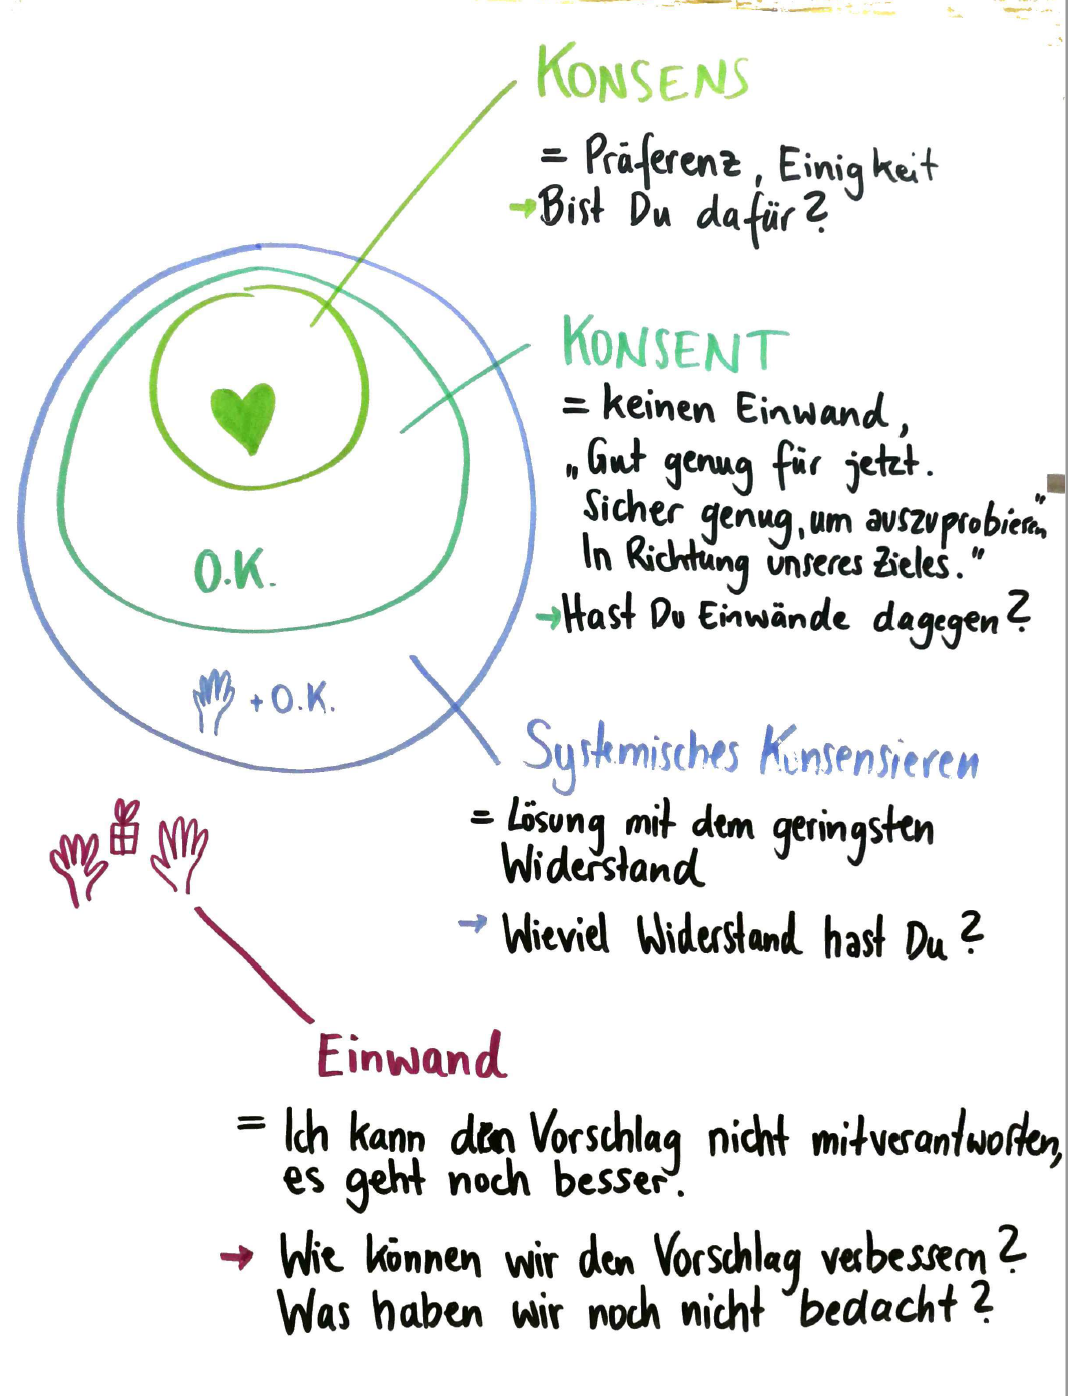 KONSENS
= Präferenz, Einigkeit
→ Bist Du dafür?
KONSENT
= keinen Einwand,
„Gut genug für jetzt.
Sicher genug, um auszuprobieren"
In Richtung unseres Zieles."
→ Hast Du Einwände dagegen?
O.K.
+ O.K.
Systemisches Konsensieren
= Lösung mit dem geringsten
Widerstand
→ Wieviel Widerstand hast Du?
Einwand
= Ich kann den Vorschlag nicht mitverantworten,
es geht noch besser.
→ Wie können wir den Vorschlag verbessern?
Was haben wir noch nicht bedacht?